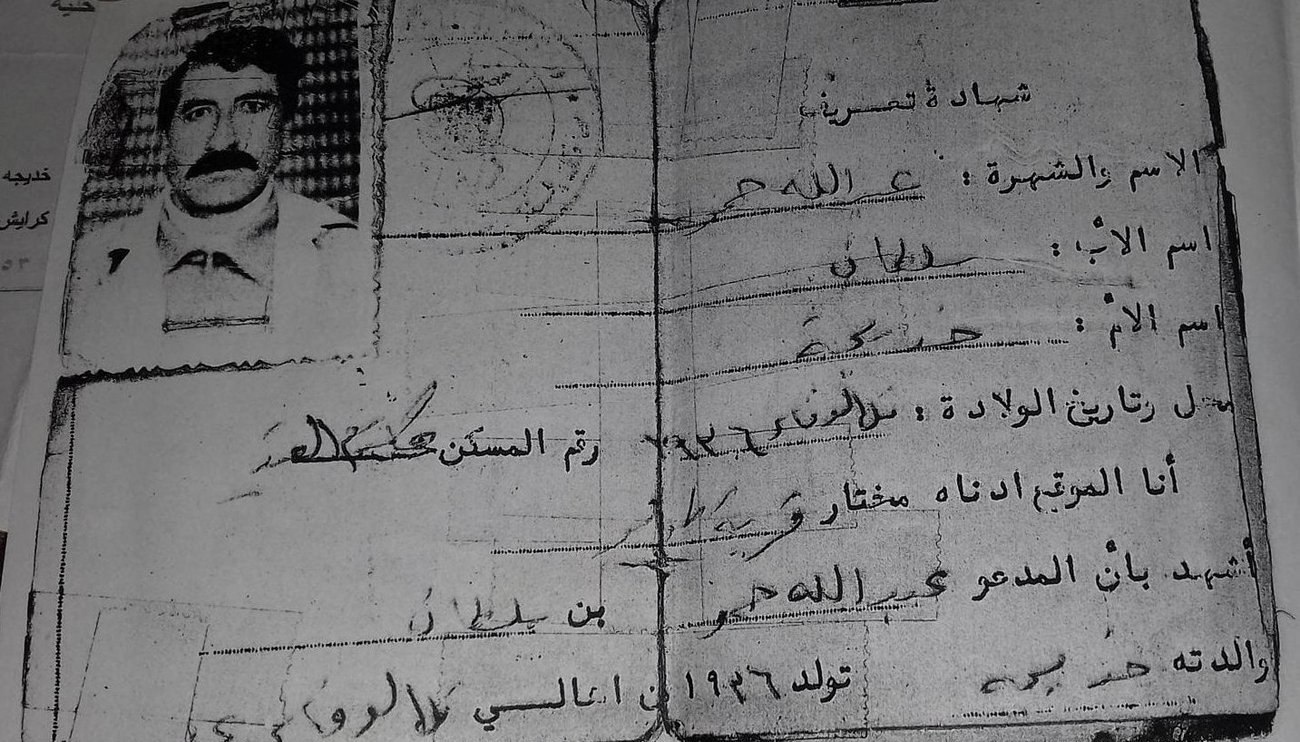 حية
خديجه
كرايش
٥٣
شهادة تعريف
الاسم والشهرة : عبد الله حمو
اسم الأب : سلطان
اسم الأم : خديجة
محل وتاريخ الولادة : ١٩٣٦
رقم المسكن
أنا الموقع ادناه مختار قرية
أشهد بأن المدعو عبد الله حمو بن سلطان
والدته خديجه تولد ١٩٣٦ من اهالي